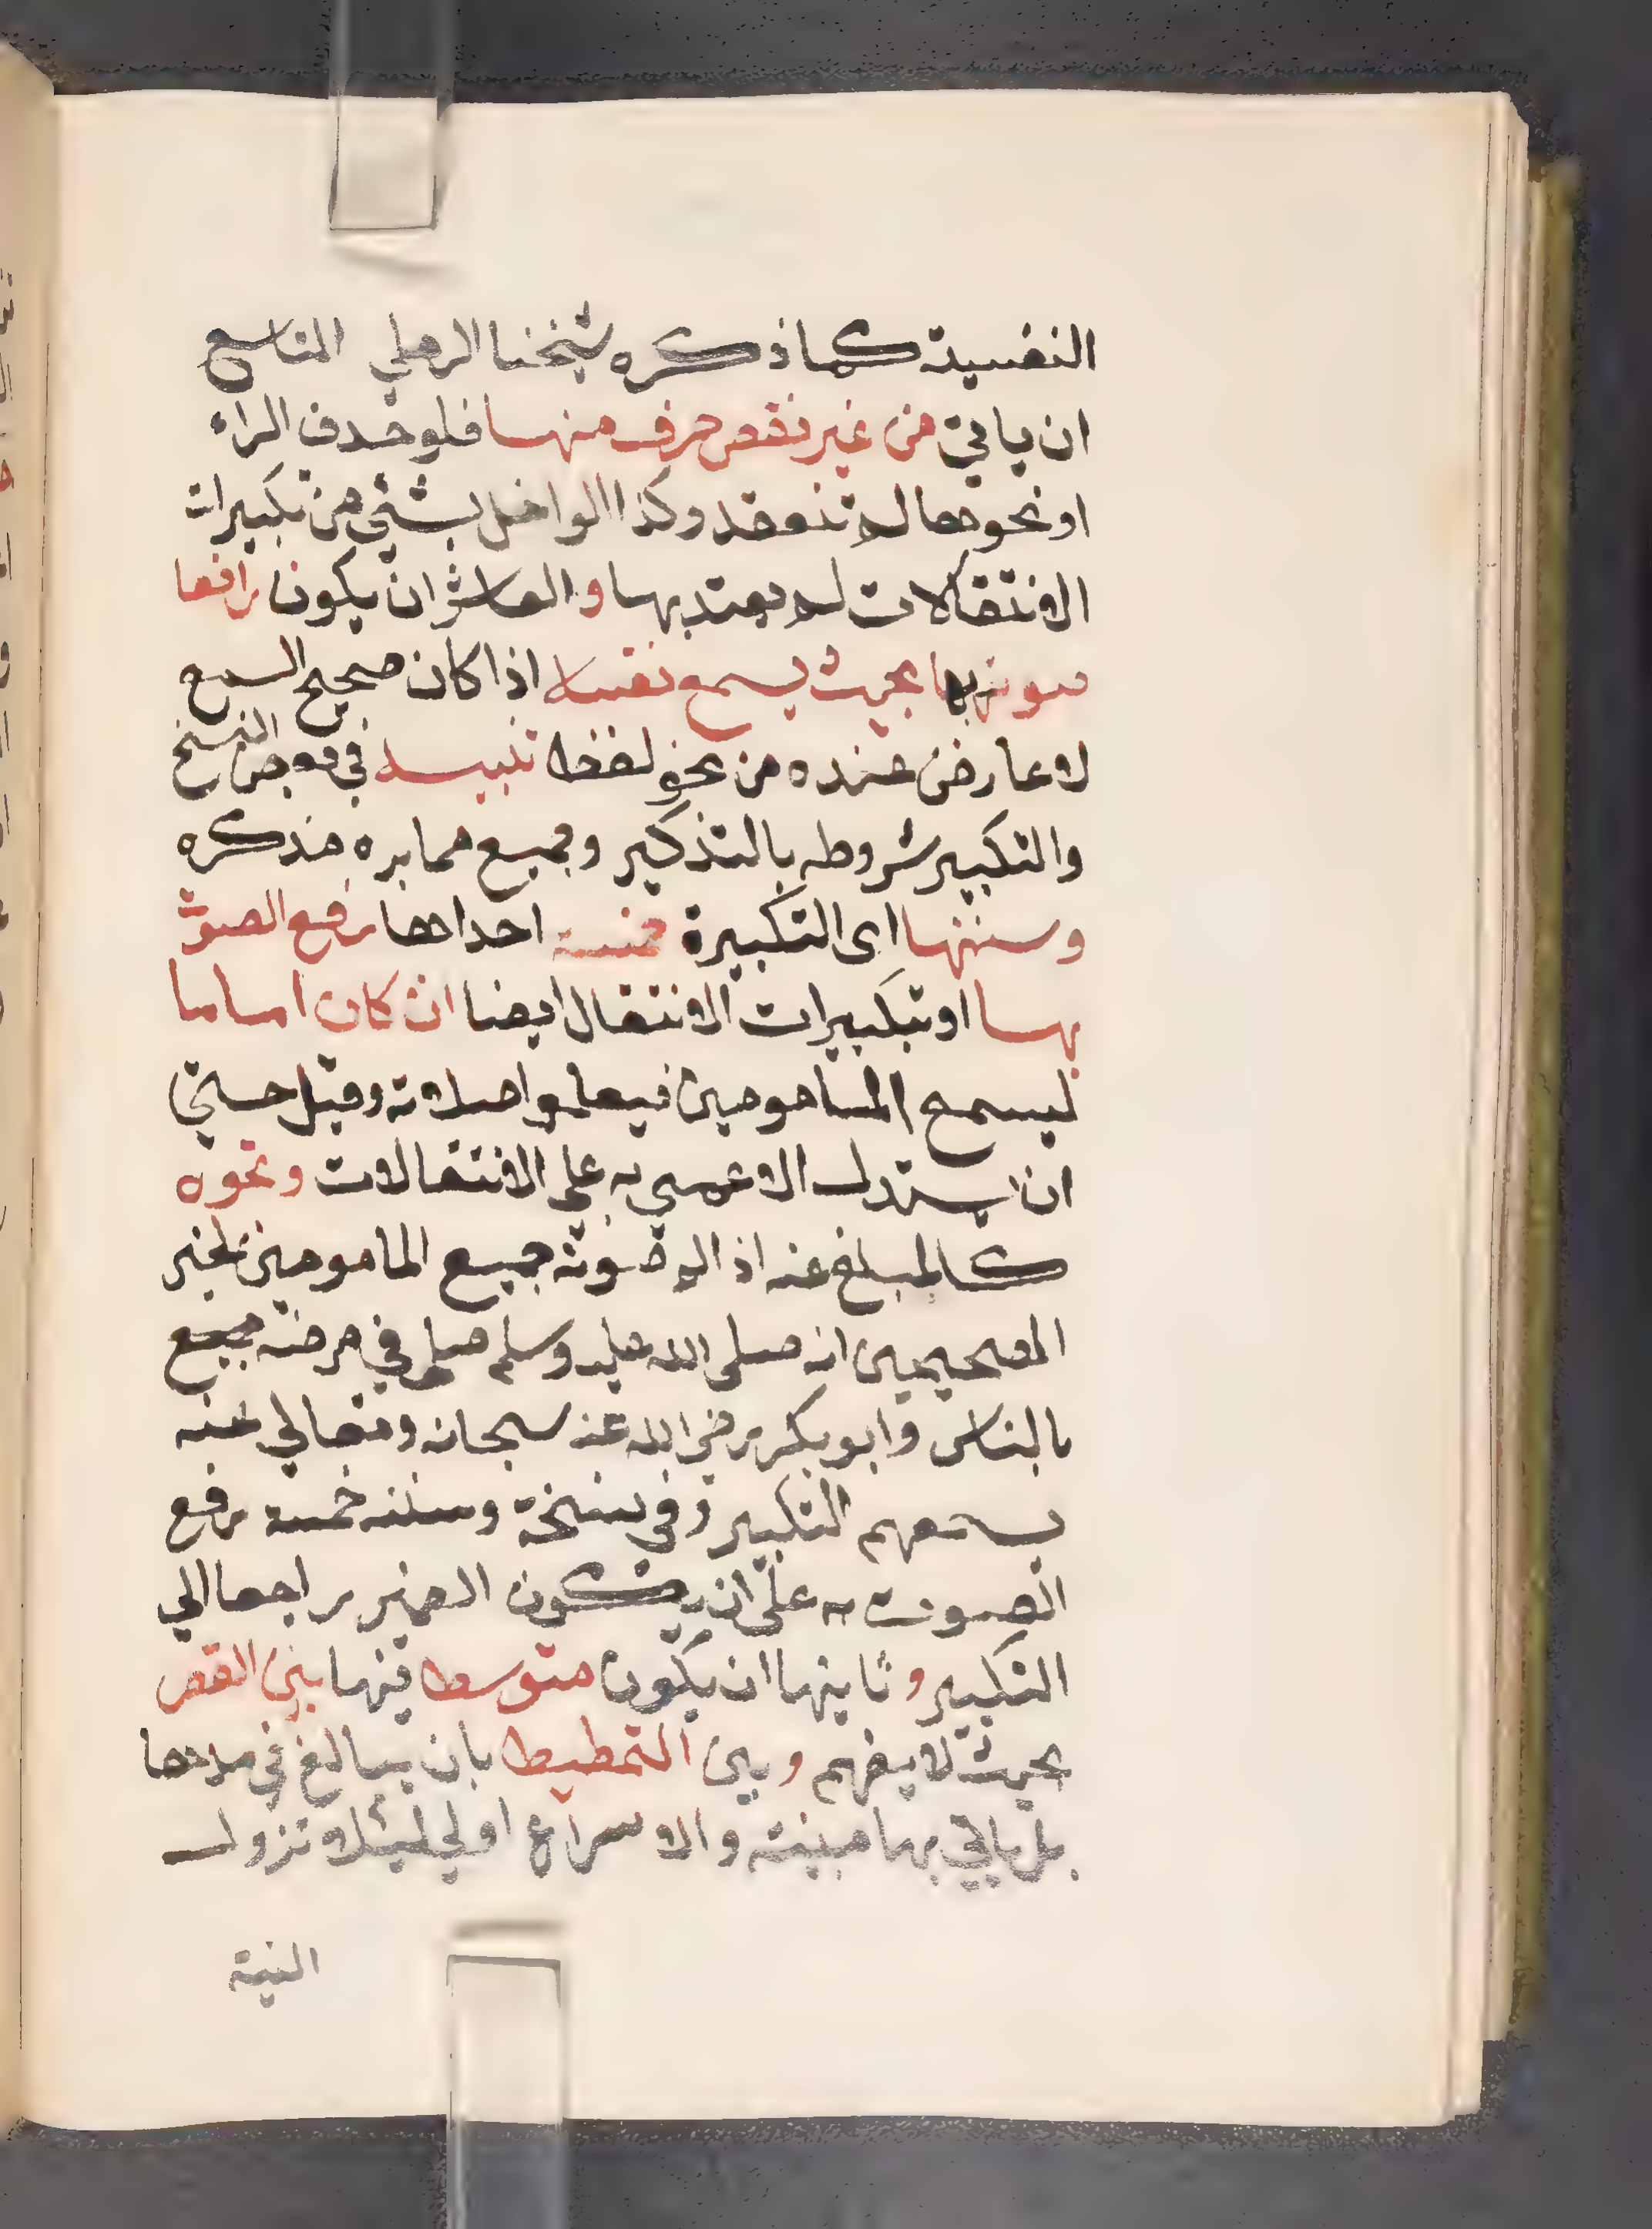 النفسية كما ذكره شيخنا الرملي التاسع
ان ياتي من غير نقص حرف منها فلو حذف الراء
او نحوها لم تنعقد وكذا الواخل بشئ من تكبيرات
الانتقالات لم يعتد بها والعاشر ان يكون رافعا
صوته بها بحيث يسمع نفسه اذا كان صحيح السمع
لا عارض عنده من نحو لغط تنبيه في بعض النسخ
والتكبير شروطه بالتذكير وجميع ضمايره مذكره
وسننها اى التكبيرة خمسة احداها رفع الصوت
بها او تبكبيرات الانتقال ايضا ان كان اماما
ليسمع المامومين فيعلموا صلاته وقيل حتي
ان يستدل الاعمي به علي الانتقالات ونحوه
كالمبلغ عنه اذ الم صوته جميع المامومين لخبر
الصحيحين انه صلى الله عليه وسلم صلى في مرضه جميع
بالناس وابو بكر رضي الله عنه سبحانه وتعالي عنه
يسمعهم التكبير وفى نسخة وسننه خمسة رفع
الصوت به على ان يكون الضمير راجعا الي
التكبير وثانيها ان يكون متوسطا فيها بين القصر
بحيث لا يفهم وبين التمطيط بان يبالغ في مدها
بل ياتي بها مبينة والاسراع اولي ليئلا تزول
النية